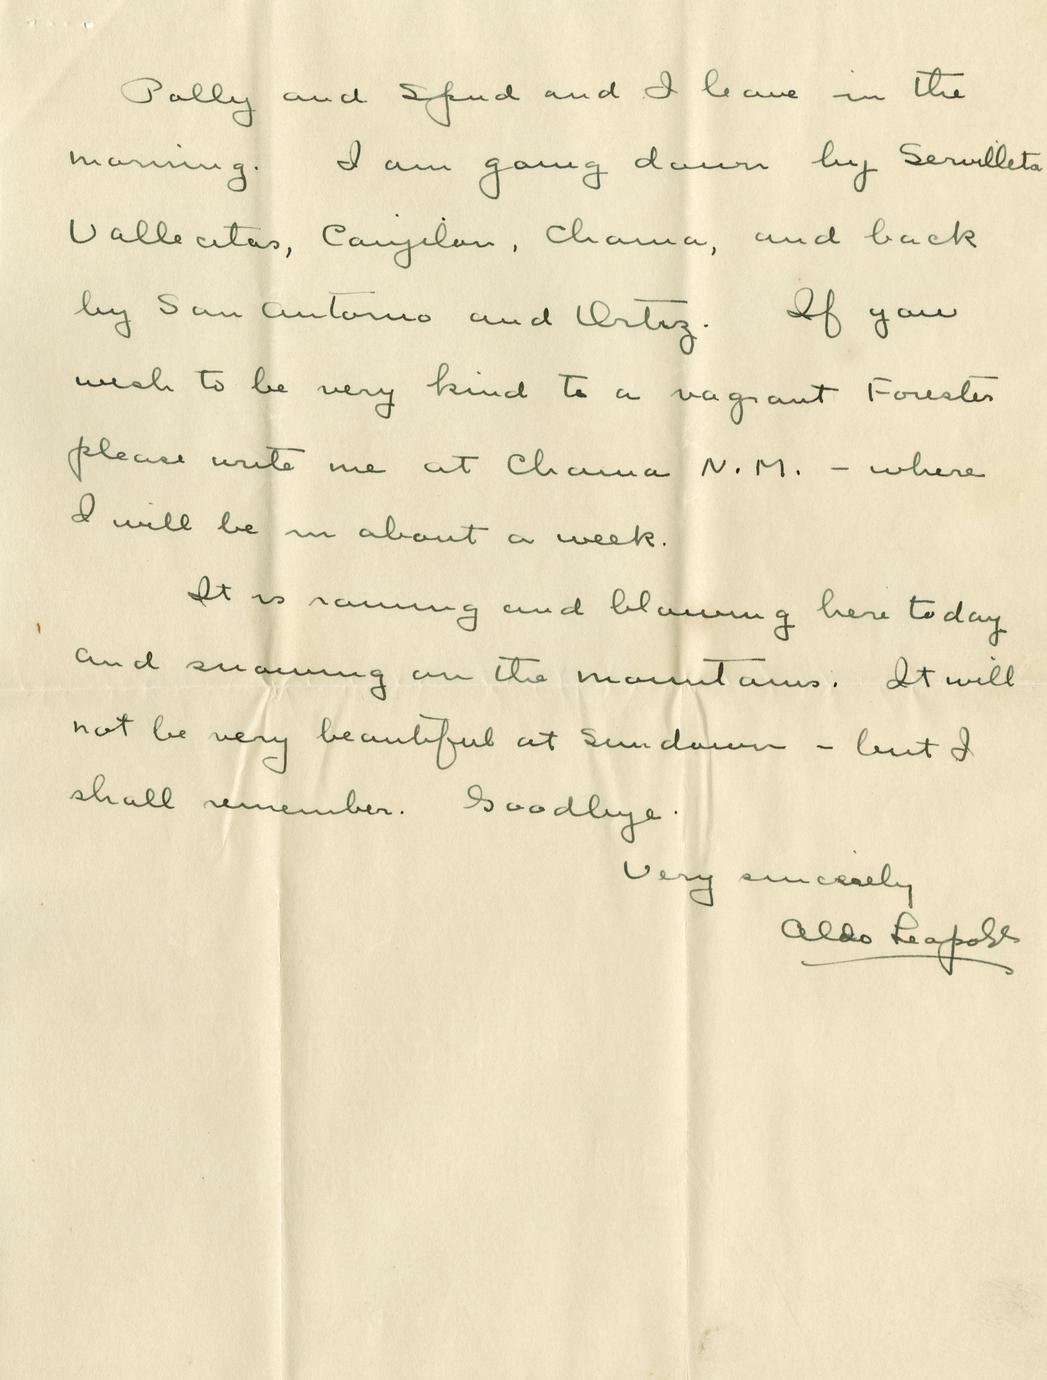 Polly and Spud and I leave in the
morning. I am going down by Servilleta
Vallecitos, Canjilon, Chama, and back
by San Antonio and Ortiz. If you
wish to be very kind to a vagrant Forester
please write me at Chama N.M. – where
I will be in about a week.
It is raining and blowing here today
and snowing on the mountains. It will
not be very beautiful at Sundown – but I
shall remember. Goodbye.
Very sincerely
Aldo Leopold